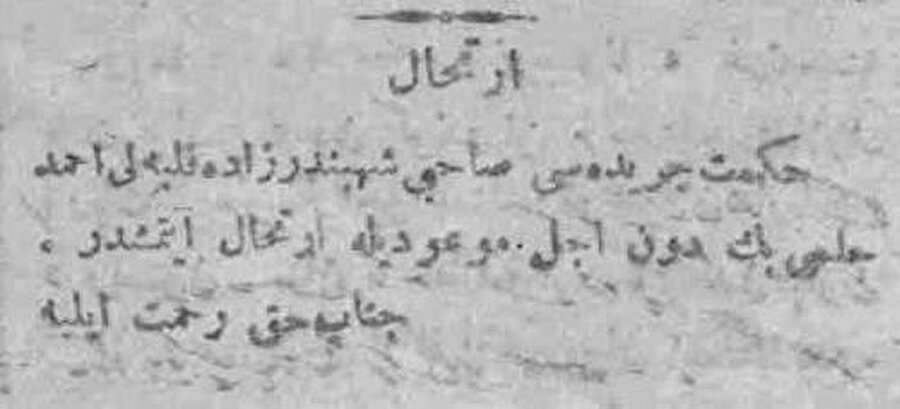 ارتحال
حكمت جريده‌سی صاحبی شهبندرزاده فلبه‌لی احمد
حلمی بك دون اجل موعوديله ارتحال ايتمشدر .
جناب حق رحمت ايليه